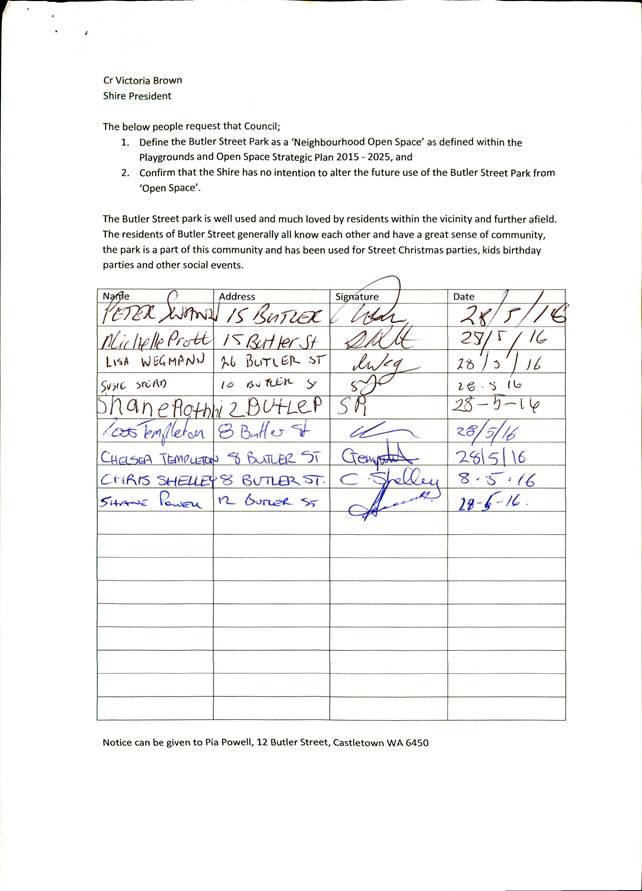 Cr Victoria Brown
Shire President
The below people request that Council;
1. Define the Butler Street Park as a ‘Neighbourhood Open Space’ as defined within the
Playgrounds and Open Space Strategic Plan 2015 - 2025, and
2. Confirm that the Shire has no intention to alter the future use of the Butler Street Park from
‘Open Space’.
The Butler Street park is well used and much loved by residents within the vicinity and further afield.
The residents of Butler Street generally all know each other and have a great sense of community,
the park is a part of this community and has been used for Street Christmas parties, kids birthday
parties and other social events.
Name Address Signature Date
PETER 15 BUTLER 28/5/16
Michelle Pratt 15 Butler St 28/5/16
LISA WEGMANN 26 BUTLER ST 28/5/16
SUSIE 10 BUTLER 28.5.16
Shane 2 BUTLER SR 28-5-16
Templeton 8 Butler St 28/5/16
CHELSEA TEMPLETON 8 BUTLER ST 28/5/16
CHRIS SHELLEY 8 BUTLER ST. C. Shelley 8.5.16
SHANE POWELL 12 BUTLER ST 28-5-16.
Notice can be given to Pia Powell, 12 Butler Street, Castletown WA 6450